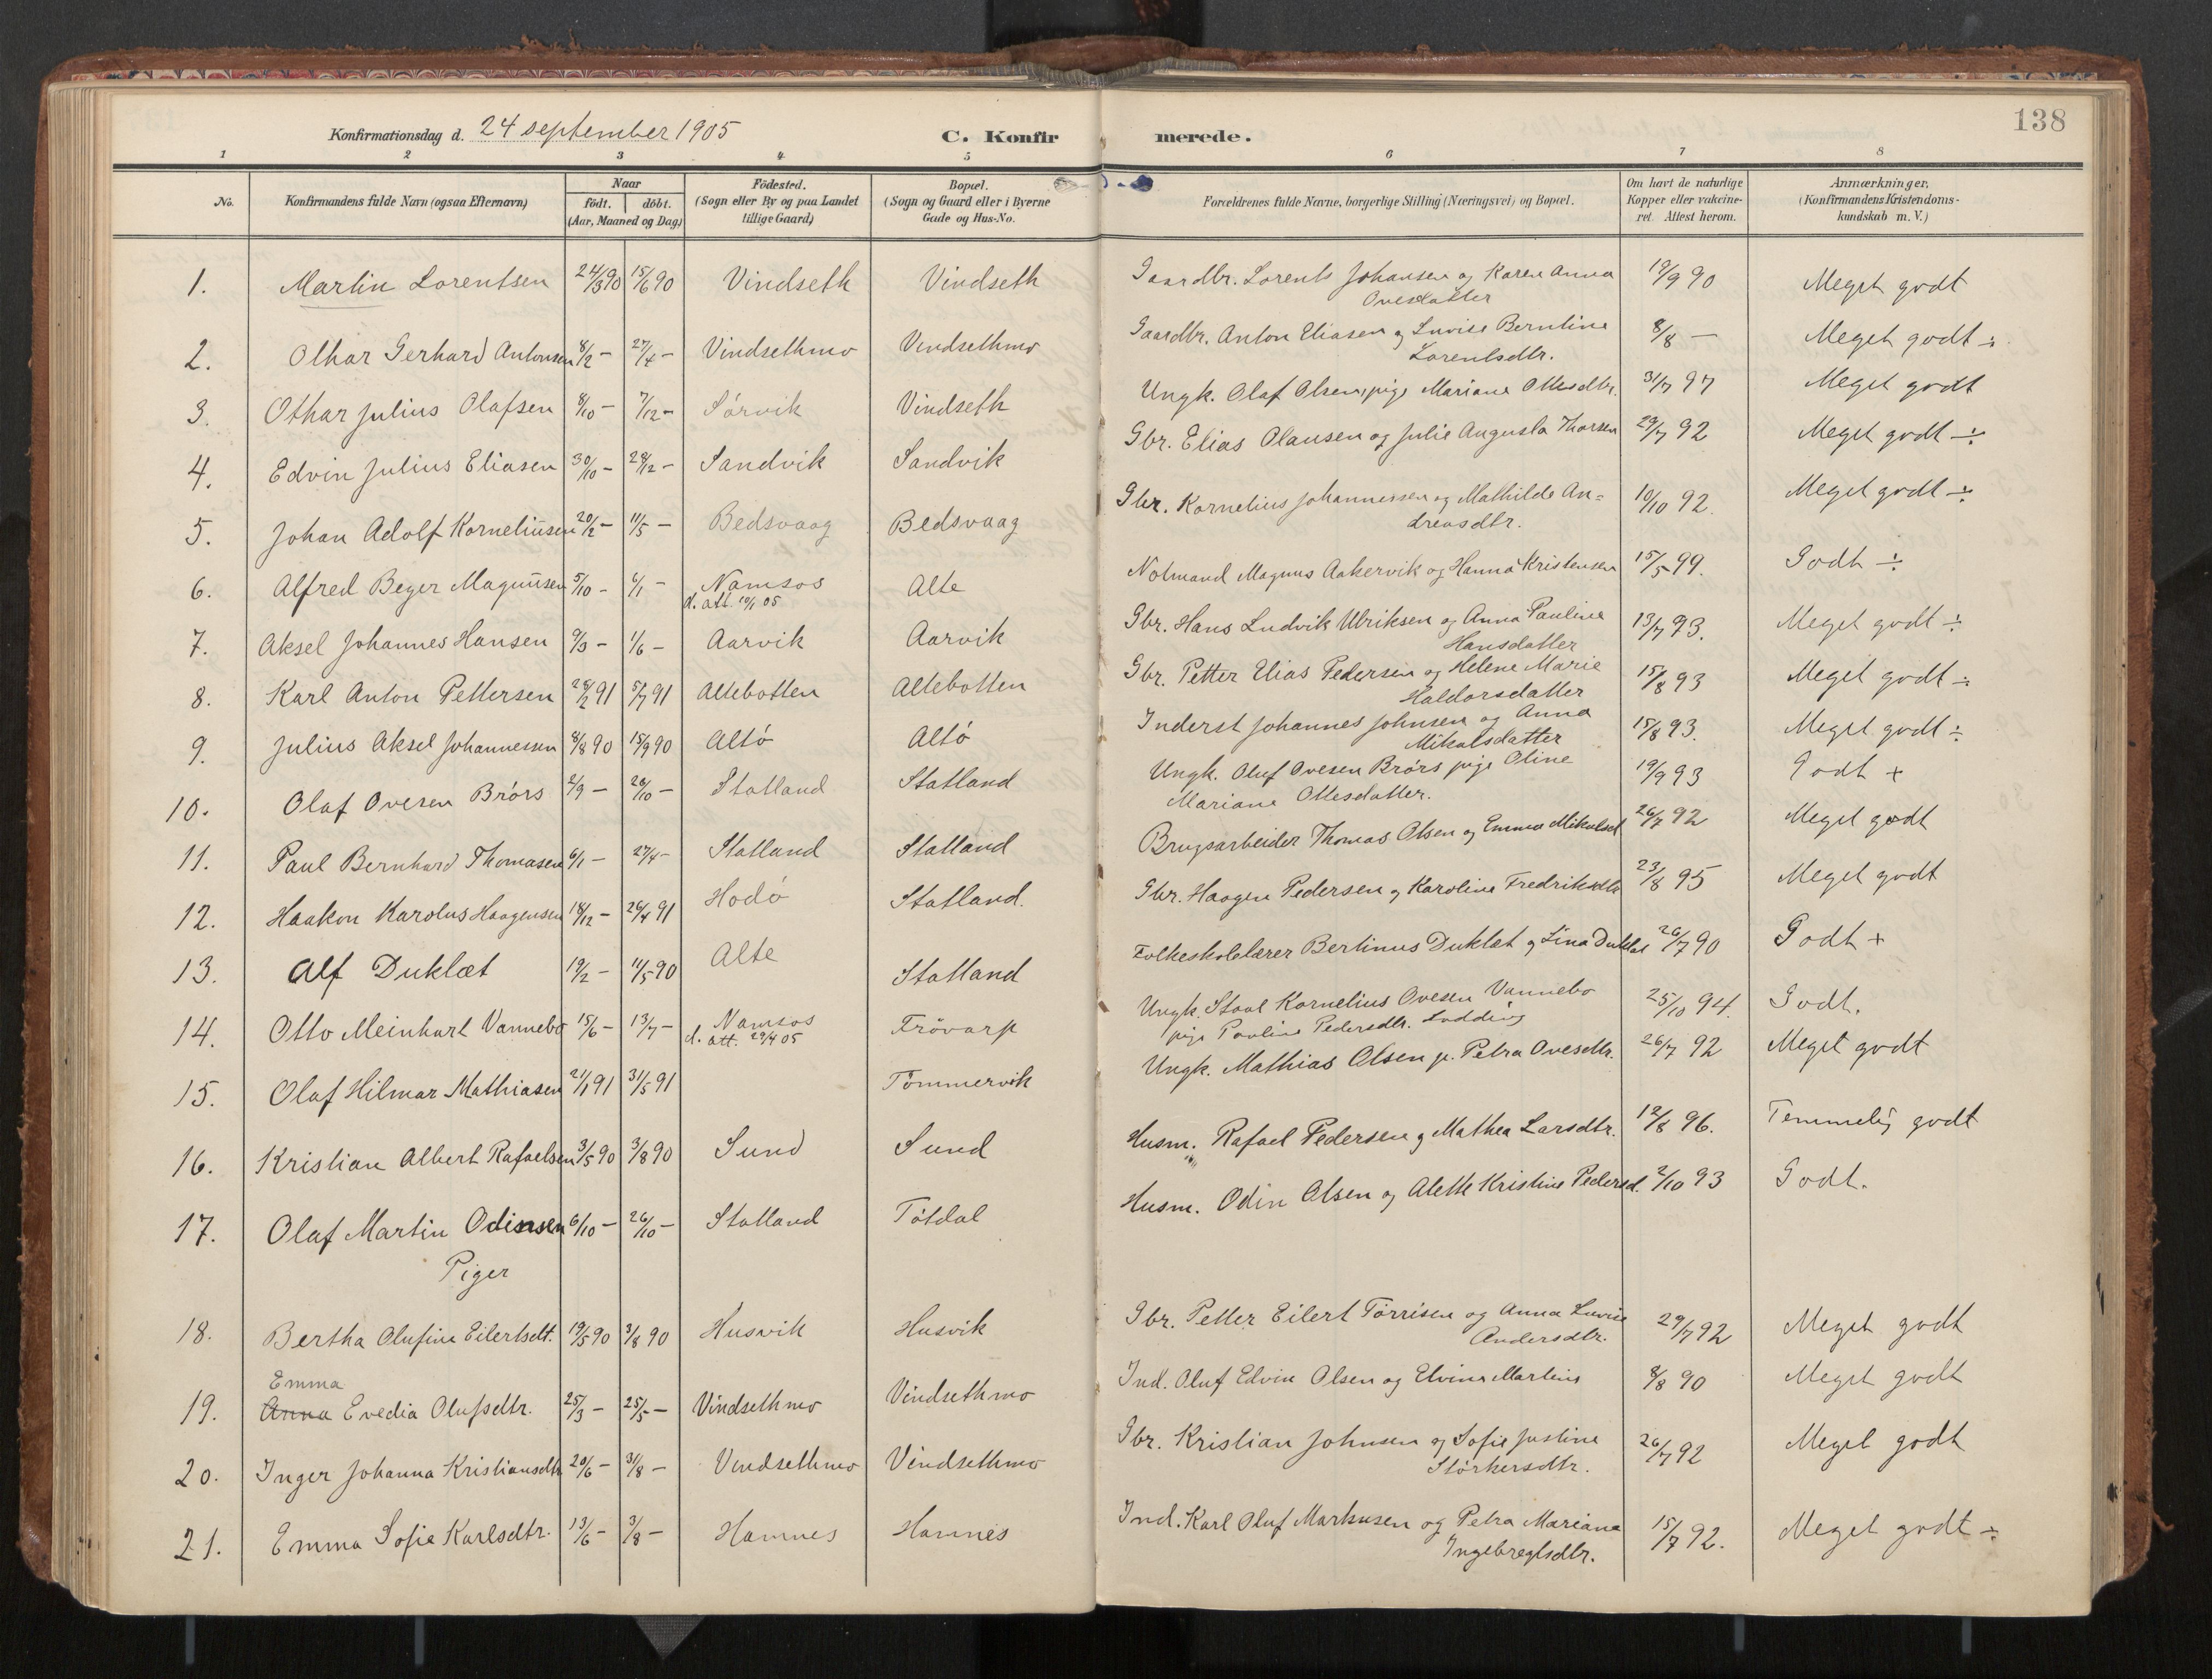 138
Konfirmationsdag d. 24 september 1905 C. Konfir merede.
1 2 3 4 5 6 7 8
No. Konfirmandens fulde Navn (ogsaa Efternavn) Naar født. døbt. (Aar, Maaned og Dag) Fødested. (Sogn eller By og paa Landet tillige Gaard) Bopæl. (Sogn og Gaard eller i Byerne Gade og Hus-No. Forældrenes fulde Navne, borgerlige Stilling (Næringsvei) og Bopæl. Om havt de naturlige Kopper eller vakcineret. Attest herom. Anmærkninger. (Konfirmandens Kristendomskundskab m. V.)
1. Martin Lorentsen 24/3 90 15/6 90 Vindseth Vindseth Gaardbr. Lorents Johansen og Karen Anna 19/9 90 Meget godt
Ovesdatter
2. Othar Gerhard Antonsen 8/2 - 27/4 - Vindsethmo Vindsethmo Gaardbr. Anton Eliasen og Lovise Berntine 8/8 - Meget godt ÷
Lorentsdtr.
3. Othar Julius Olafsen 8/10 - 7/12 - Sørvik Vindseth Ungk. Olaf Olsen, pige Mariane Ottesdtr. 31/7 97 Meget godt
4. Edvin Julius Eliasen 30/10 - 28/12 - Sandvik Sandvik Gbr. Elias Olausen og Julie Augusta Thorsen 29/7 92 Meget godt ÷
5. Johan Adolf Korneliusen 20/2 - 11/5 - Bedsvaag Bedsvaag Gbr. Kornelius Johannessen og Mathilde An= 10/10 92. Meget godt ÷
dreasdtr.
6. Alfred Beyer Magnusen 5/10 - 6/1 - Namsos Alte Notmand Magnus Aakervik og Hanna Kristensen 15/5 99. Godt ÷
d. att. 10/1 05
7. Aksel Johannes Hansen 9/3 - 1/6 - Aarvik Aarvik Gbr. Hans Ludvik Ulriksen og Anna Pauline 13/7 93. Meget godt ÷
Hansdatter
8. Karl Anton Pettersen 28/2 91 5/7 91 Altebotten Altebotten Gbr. Petter Elias Pedersen og Helene Marie 15/8 93 Meget godt ÷
Haldorsdatter
9. Julius Aksel Johannessen 8/8 90 15/9 90 Altø Altø Inderst Johannes Johnsen og Anna 15/8 93. Meget godt ÷
Mikalsdatter
10. Olaf Ovesen Brørs 2/9 - 28/10 - Statland Statland Ungk. Oluf Ovesen Brørs pige Oline 19/9 93 Godt +
Mariane Ottesdatter.
11. Paul Bernhard Thomasen 6/1 - 27/4 - Statland Statland Brugsarbeider Thomas Olsen og Emma Mikalsd 26/7 92 Meget godt
12. Haakon Karolus Haagensen 18/12 - 26/4 91 Hodø Statland. Gbr. Haagen Pedersen og Karoline Fredriksdtr 23/8 95 Meget godt
13. Alf Duklæt 19/2 - 11/5 90 Alte Statland Folkeskolelærer Bertinus Duklæt og Lina Duklæt 26/7 90 Godt +
14. Otto Meinhart Vannebo 15/6 - 13/7 - Namsos Frövarp Ungk. Staal Kornelius Ovesen Vannebo 25/10 94. Godt.
d. att. 29/4 05 pige Pauline Pedersdtr. Lodding
15. Olaf Hilmar Mathiasen 21/1 91 31/5 91 Tømmervik Ungk. Mathias Olsen p. Petra Ovesdtr. 26/7 92 Meget godt
16. Kristian Albert Rafaelsen 3/5 90 3/8 90 Sund Sund Husm. Rafael Pedersen og Mathea Larsdtr. 12/8 96. Temmelig godt
17. Olaf Martin Odinsen 6/10 - 26/10 - Statland Tøtdal Husm. Odin Olsen og Alette Kristine Pedersd. 2/10 93 Godt.
Piger
18. Bertha Olufine Eilertsdt. 19/5 90 3/8 90 Husvik Husvik Gbr. Petter Eilert Tørrisen og Anna Lovise 29/7 92 Meget godt
Andersdtr.
Emma
19. Anna Evedia Olufsdtr. 25/3 - 25/5 - Vindsethmo Vindsethmo Ind. Oluf Edvin Olsen og Elvina Martins 8/8 90 Meget godt
20. Inger Johanna Kristiansdtr 20/6 - 31/8 - Vindsethmo Vindsethmo Gbr. Kristian Johnsen og Sofie Justine 26/7 92 Meget godt
Størkersdtr.
21. Emma Sofie Karlsdtr. 13/6 - 3/8 - Hamnes Hamnes Ind. Karl Oluf Markusen og Petra Mariana 15/7 92. Meget godt ÷
Ingebregtsdtr.